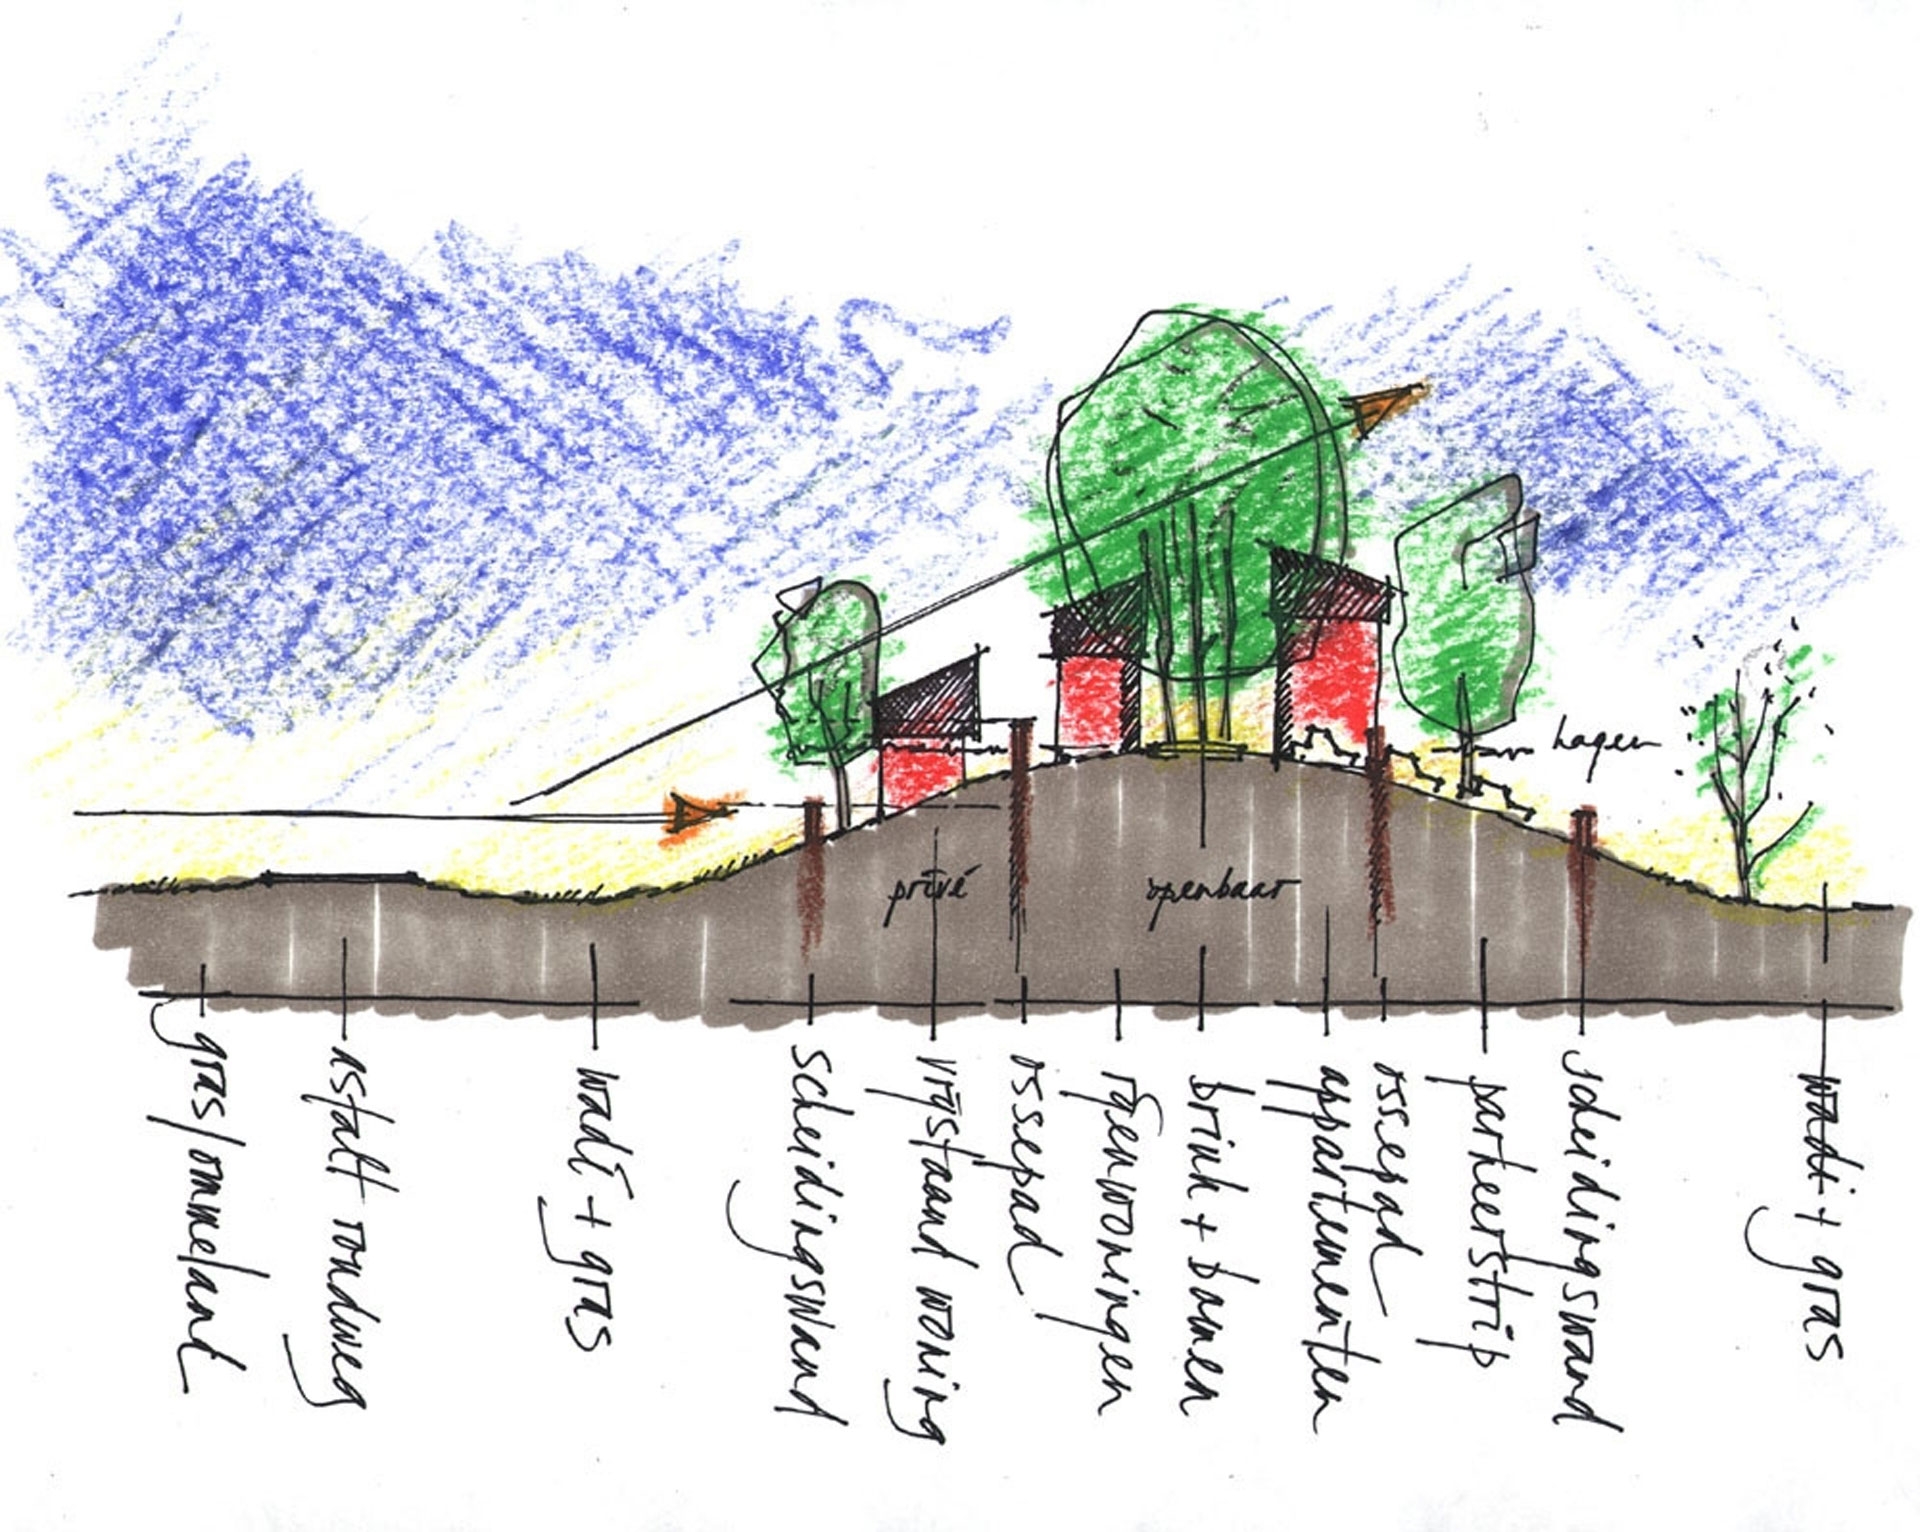 hagen
privé
openbaar
gras/ommeland
asfalt rondweg
wadi + gras
scheidingswand
vrijstaand woning
ossepad
rijenwoningen
brink + bomen
appartementen
ossepad
parkeerstrip
scheidingswand
wadi + gras